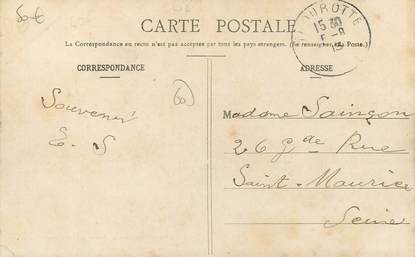 50€
CARTE POSTALE
La Correspondance au recto n'est pas acceptée par tous les pays étrangers. (Se renseigner à la Poste.)
CORRESPONDANCE
ADRESSE
15 30
5-8
Souvenir
E. S
60
Madame
26 Gde Rue
Saint-Maurice
Seine